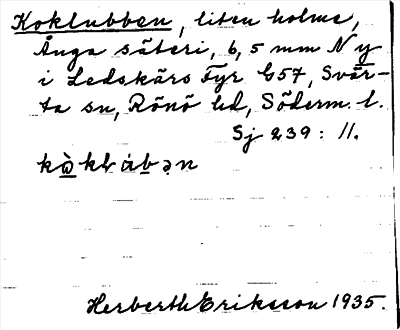 Koklubben, liten holme,
Ånga säteri, 6,5 mm N y
i Ledskärs Fyr G57, Svär-
ta sn, Rönö hd, Söderm. l.
Sj 239: 11.
Herberth Eriksson 1935.